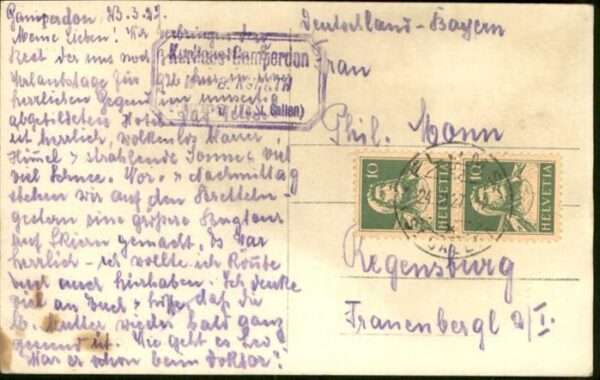 Gamperdon, 23.3.27.
Meine Lieben! Wir verbringen den
Rest der uns noch
Urlaubstage für
herrlichen Gegend im umseitig
abgebildeten Hotel. Das Wetter
ist herrlich, wolkenlos blauer
Himmel & strahlende Sonne & viel
viel Schnee. Vor- & Nachmittag
stehen wir auf den Bretteln-
gestern eine grössere Skitour
auf Skiern gemacht, es war
herrlich - ich wollte ich könnte
Euch auch hierhaben. Ich denke
viel an Euch & hoffe, daß Du
lb. Mutter wieder bald ganz
gesund ist. Wie geht es Leo?
War er schon beim Doktor?
Kurhaus Gamperdon
St. Gallen)
Deutschland-Bayern
Frau
Phil. Mann
Regensburg
Frauenbergl 2/I.
10
HELVETIA
10
HELVETIA